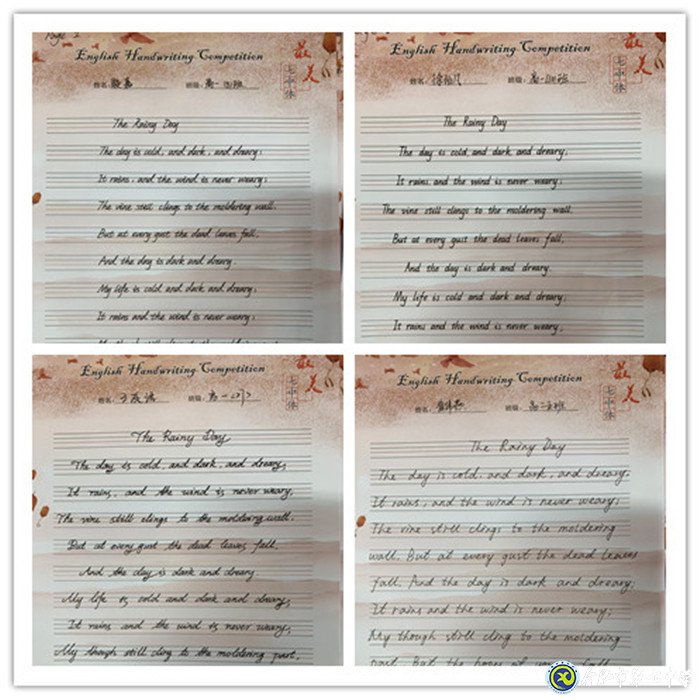 Page 2
English Handwriting Competition
最美
七中体
姓名: 班级: 高一 班
The Rainy Day
The day is cold, and dark, and dreary;
It rains, and the wind is never weary;
The vine still clings to the moldering wall,
But at every gust the dead leaves fall,
And the day is dark and dreary.
My life is cold and dark and dreary;
It rains and the wind is never weary;
English Handwriting Competition
最美
七中体
姓名: 班级: 高一 班
The Rainy Day
The day is cold, and dark, and dreary;
It rains, and the wind is enver weary;
The vine still clings to the moldering wall,
But at every gust the dead leaves fall,
And the day is dark and dreary.
My life is cold and dark and dreary;
It rains and the wind is never weary;
English Handwriting Competition
最美
七中体
姓名: 班级: 高一
The Rainy Day
The day is cold, and dark, and dreary;
It rains, and the wind is never weary;
The vine still clings to the moldering wall.
But at every gust the dead leaves fall,
And the day is dark and dreary.
My life is cold and dark and dreary;
It rains and the wind is never weary;
My though still cling to the moldering past,
English Handwriting Competition
最美
七中体
姓名: 班级: 高二 班
The Rainy Day
The day is cold, and dark, and dreary,
It rains, and the wind is never weary;
The vine still clings to the moldering
wall, But at every gust the dead leaves
fall, And the day is dark and dreary;
It rains and the wind is never weary;
My though still cling to the moldering
past, But the hopes of youth fall